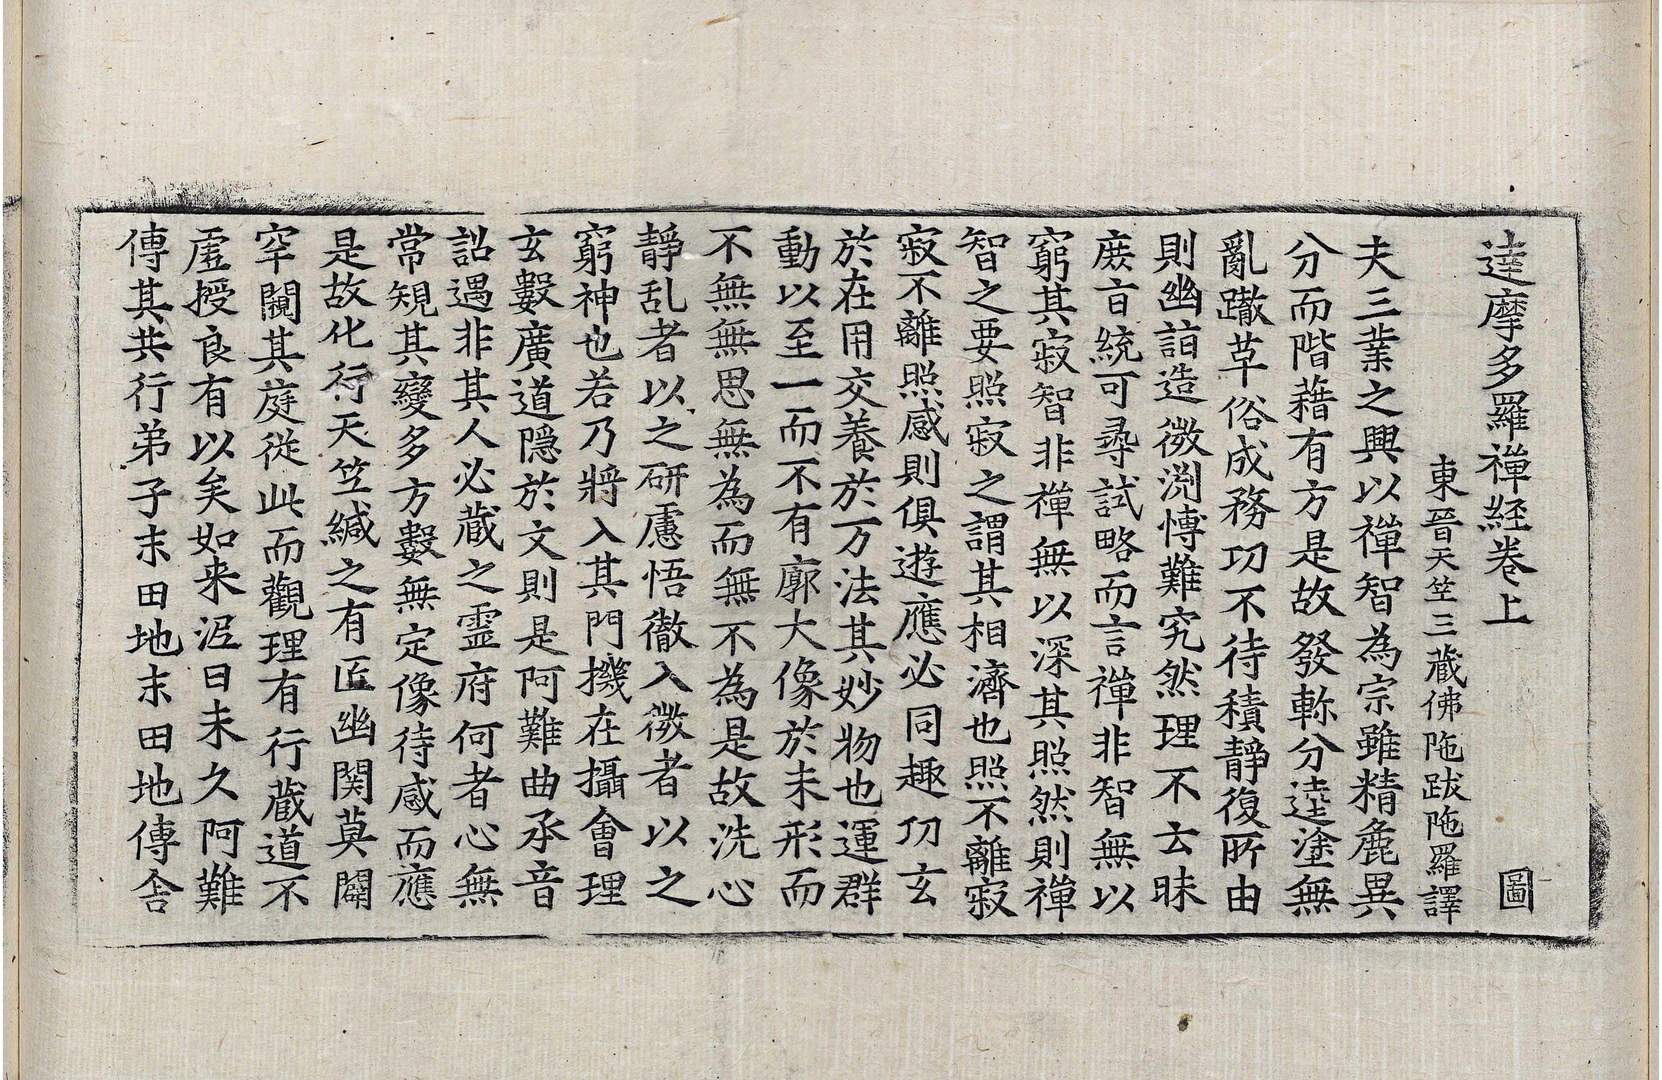 達摩多羅禪経卷上 圖
東晉天竺三藏佛陁跋陁羅譯
夫三業之興以禪智為宗雖精麁異
分而階藉有方是故發軫分逵塗無
亂轍革俗成務功不待積靜復所由
則幽詣造微渕愽難究然理不云昧
庻㫖統可尋試略而言禪非智無以
窮其寂智非禪無以深其照然則禪
智之要照寂之謂其相濟也照不離寂
寂不離照感則俱遊應必同趣功玄
於在用交養於万法其妙物也運群
動以至一而不有廓大像於未形而
不無無思無為而無不為是故洗心
靜乱者以之研慮悟徹入微者以之
窮神也若乃將入其門機在攝會理
玄數廣道隱於文則是阿難曲承音
詔遇非其人必蔵之靈府何者心無
常䂓其變多方數無定像待感而應
是故化行天竺緘之有匠幽関莫闢
罕闚其庭從此而觀理有行蔵道不
虛授良有以矣如来泥曰未久阿難
傳其共行弟子末田地末田地傳舎